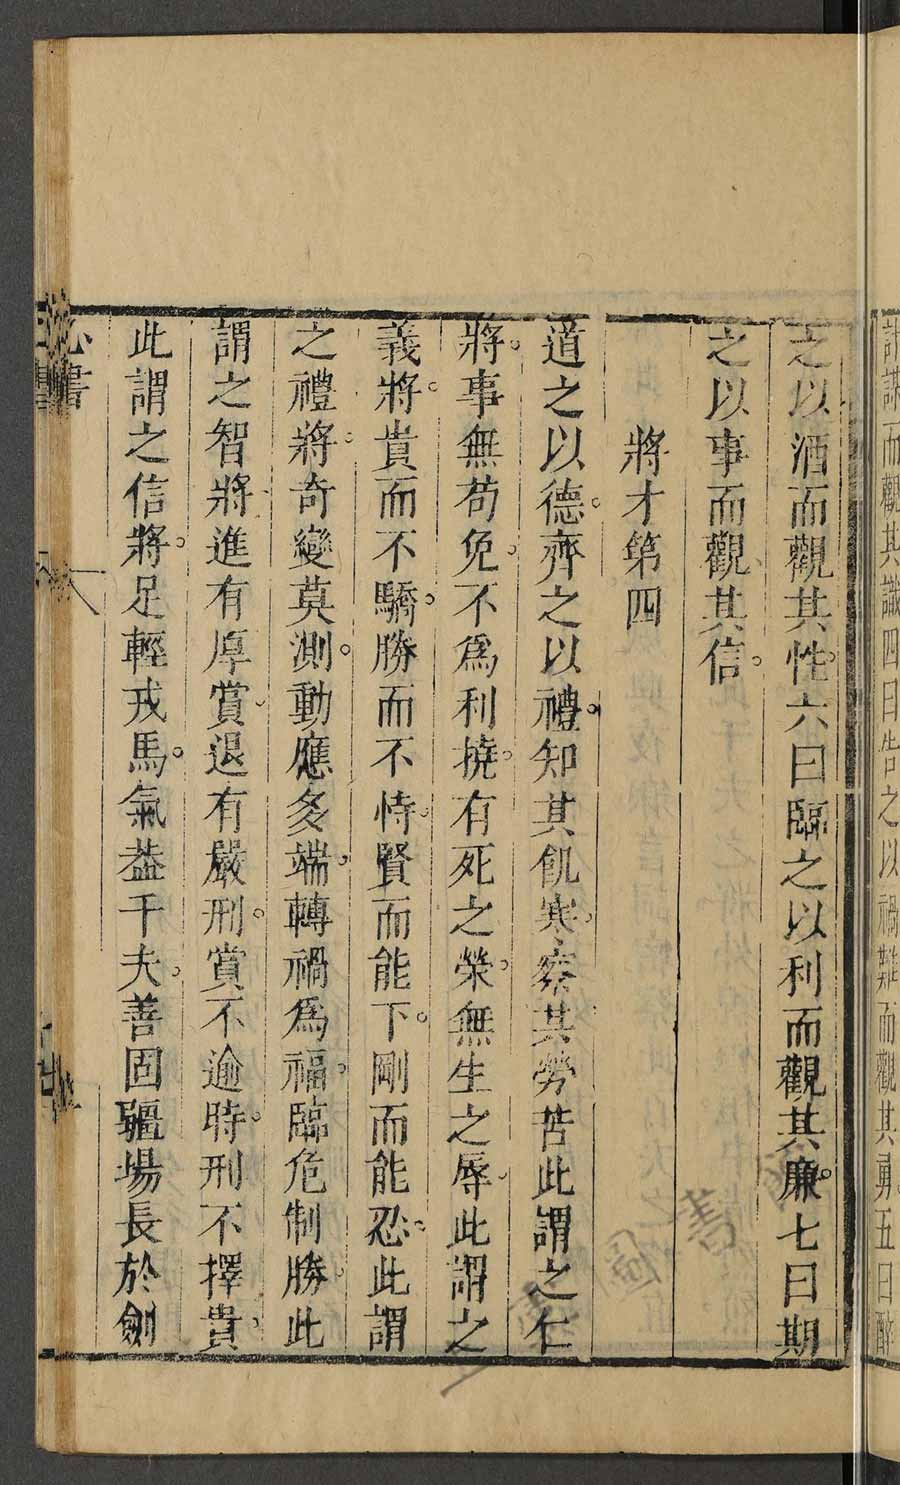 計謀而觀其識四曰告之以禍難而觀其勇五曰醉
之以酒而觀其性。六曰臨之以利而觀其廉。七曰期
之以事而觀其信。
將才第四
道之以德。齊之以禮。知其飢寒。察其勞苦此謂之仁
將。事無苟免。不爲利撓。有死之榮。無生之辱。此謂之
義將。貴而不驕。勝而不恃。賢而能下。剛而能忍。此謂
之禮將。奇變莫測。動應多端。轉禍爲福。臨危制勝。此
謂之智將進有厚賞。退有嚴刑。賞不逾時。刑不擇貴。
此謂之信將。足輕戎馬。氣葢千夫。善固疆場長於劍
心書
八